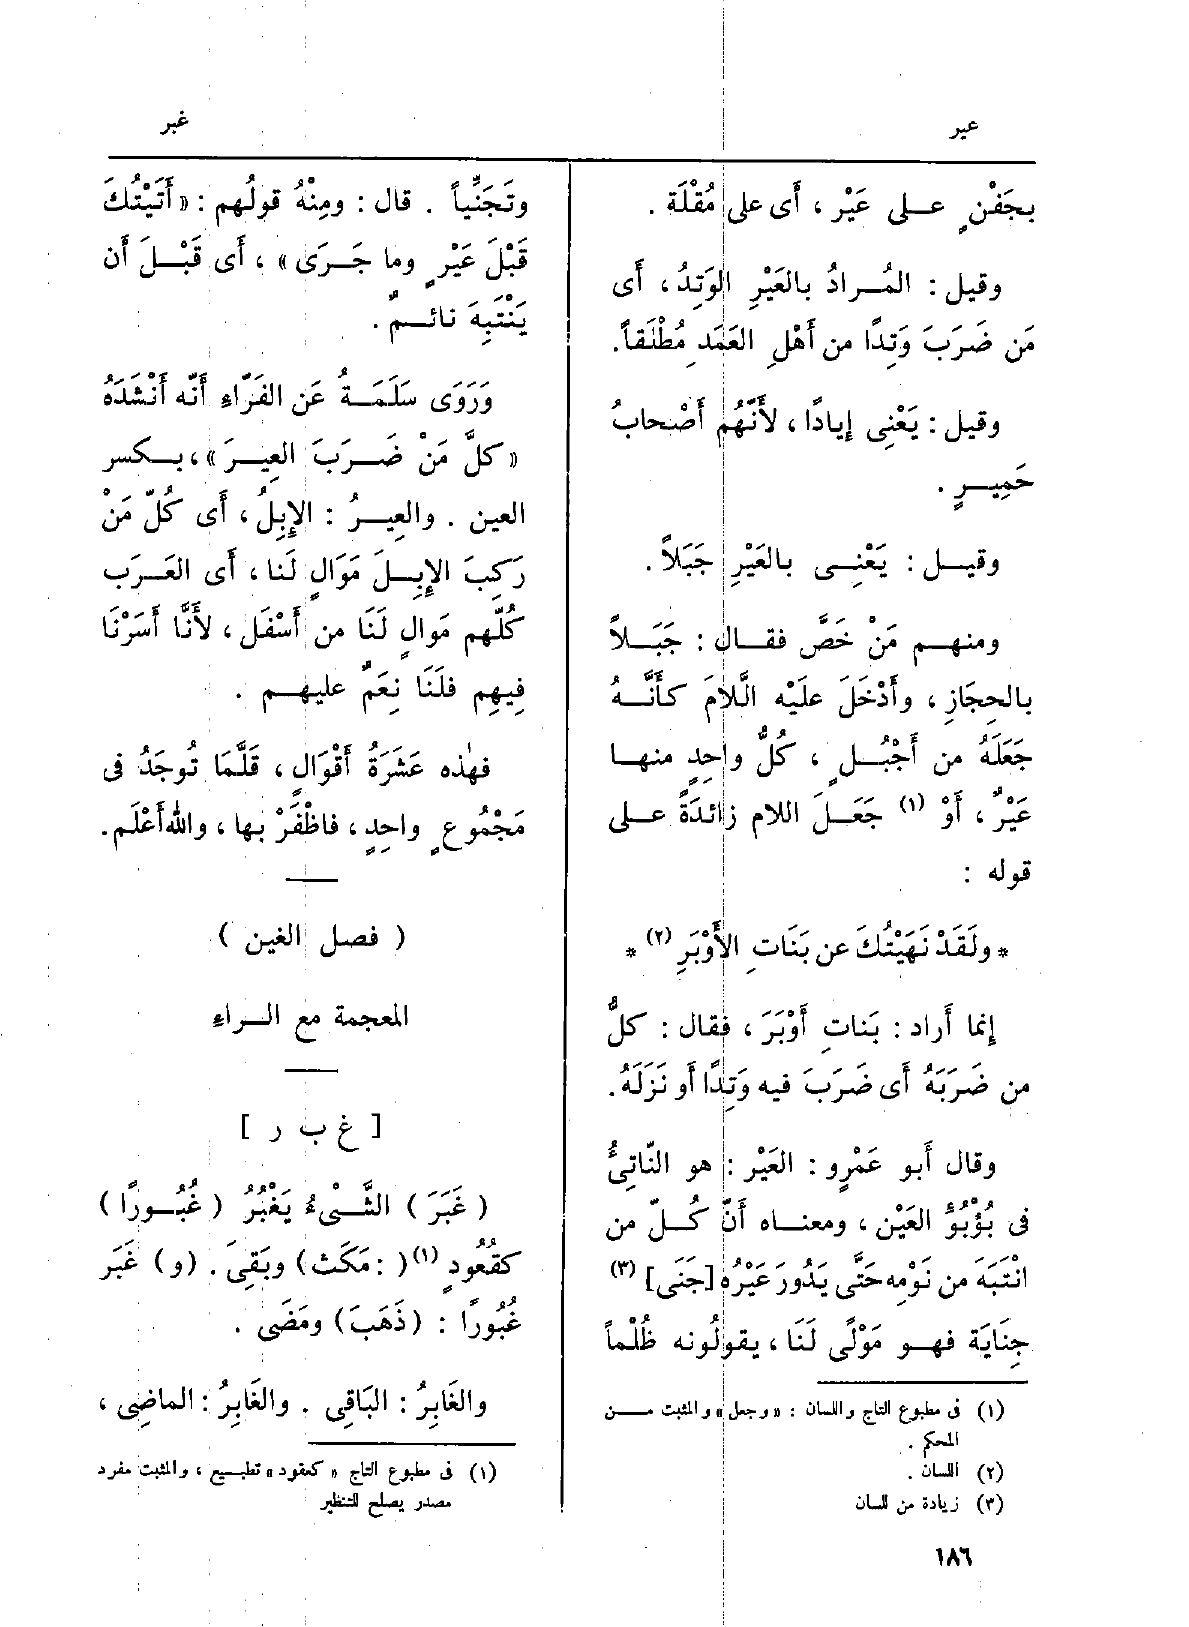 عير
غبر
بجَفْنٍ على عَيْر ، أَى على مُقْلَة .
وقيل : المُرادُ بالعَيْرِ الوَتِدُ ، أَى
مَن ضَرَبَ وَتِدًا من أَهْلِ العَمَدِ مُطْلَقاً .
وقيل : يَعْنِى إيادًا ، لأَنَّهُم أَصْحابُ
حَمِيرٍ .
وقيل : يَعْنِى بالعَيْرِ جَبَلاً .
ومنهم مَنْ خَصَّ فقال : جَبَلاً
بالحِجَازِ ، وأَدْخَلَ علَيْه الَّلامَ كأَنَّهُ
جَعَلَهُ من أَجْبُلٍ ، كلُّ واحِدٍ منها
عَيْرٌ ، أَوْ (١) جَعَلَ اللام زائدَةً على
قوله :
* ولَقَدْ نَهَيْتُكَ عن بَنَاتِ الأَوْبَرِ (٢) *
إنما أَراد : بَناتِ أَوْبَرَ ، فقال : كلُّ
من ضَرَبَهُ أَى ضَرَبَ فيه وَتِدًا أو نَزَلَهُ .
وقال أَبو عَمْرٍو : العَيْر : هو النّاتِئُ
فى بُؤْبُؤِ العَيْن ، ومعناه أَنّ كُلّ من
انْتَبَهَ من نَوْمِه حَتَّى يَدُورَ عَيْرُه [جَنَى] (٣)
جِنَايَة فهو مَوْلًى لَنَا ، يقولُونه ظُلْماً
(١) فى مطبوع التاج واللسان : «وجعل» والمثبت من
المحكم .
(٢) اللسان .
(٣) زيادة من اللسان
وتَجَنِّياً . قال : ومِنْهُ قولُهم : «أَتَيْتُكَ
قَبْلَ عَيْرٍ وما جَرَى» ، أَى قَبْلَ أَن
يَنْتَبِهَ نائمٌ .
وَرَوَى سَلَمَةُ عَن الفَرّاءِ أَنّه أَنْشَدَهُ
«كلَّ مَنْ ضَرَبَ العِيرَ» ، بكسر
العين . والعِيرُ : الإبِلُ ، أَى كُلّ مَنْ
رَكِبَ الإِبِلَ مَوَالٍ لَنا ، أَى العَرَب
كُلّهم مَوالٍ لَنَا من أَسْفَل ، لأَنَّا أَسَرْنَا
فِيهِم فلَنَا نِعَمٌ عليهم .
فهٰذه عَشَرَةُ أَقْوَالٍ ، قَلَّمَا تُوجَدُ فى
مَجْمُوعٍ واحِدٍ ، فاظْفَرْ بها ، والله أَعْلَم .
( فصل الغين )
المعجمة مع الراء
[ غ ب ر ]
( غَبَرَ ) الشَّىْءُ يَغْبُرُ ( غُبُورًا )
كقُعُودٍ (١) ( : مَكَث ) وبَقِىَ . (و) غَبَر
غُبُورًا : (ذَهَبَ) ومَضَى .
والغَابِرُ : البَاقِى . والغَابِرُ : الماضِى ،
(١) فى مطبوع التاج «كعقود» تطبيع ، والمثبت مفرد
مصدر يصلح للتنظير
١٨٦